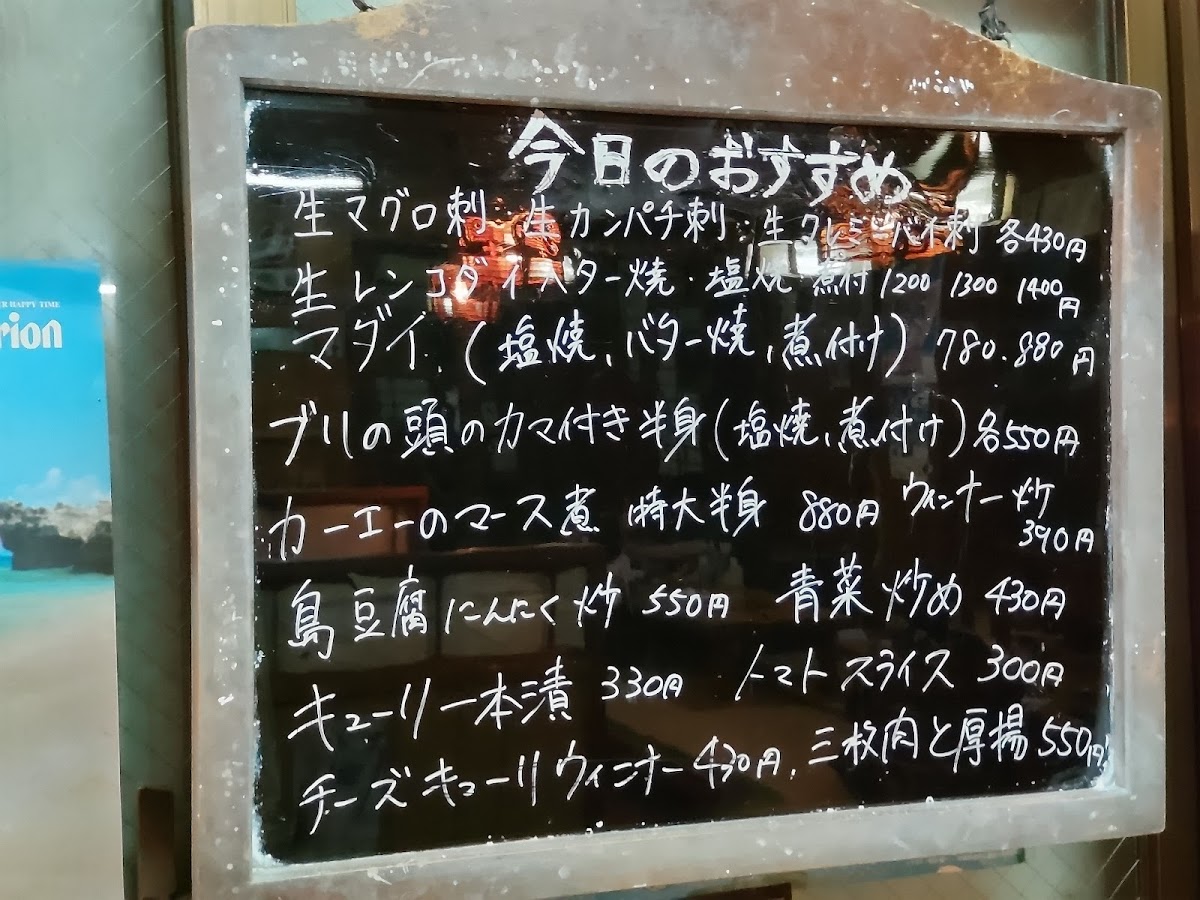 今日のおすすめ
生マグロ刺・生カンパチ刺・生クレミーバイ刺 各430円
生レンコダイバター焼・塩焼 煮付 1200 1300 1400円
マダイ.(塩焼、バター焼、煮付け) 780.880円
ブリの頭のカマ付き半身(塩焼、煮付け)各550円
カーエーのマース煮 特大半身 880円 ウィンナー炒 390円
島豆腐にんにく炒 550円 青菜炒め 430円
キューリ一本漬 330円 トマトスライス 300円
チーズキューリウィンナー430円、三枚肉と厚揚550円
R HAPPY TIME
rion